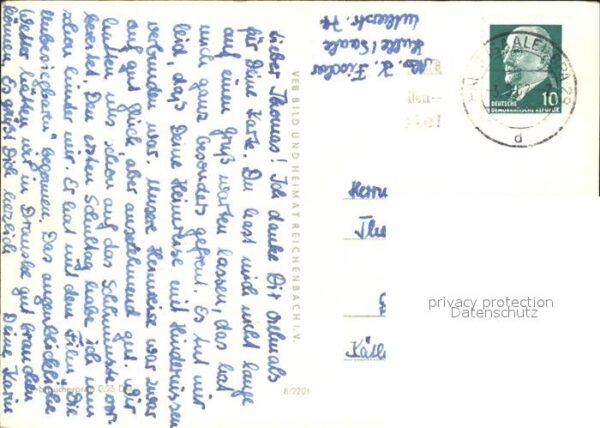 Lieber Thomas! Ich danke Dir vielmals
für Deine Karte. Du liest mich nicht lange
auf einen Gruß warten lassen, das hat
mich ganz besonders gefreut. Es tut mir
leid, daß Deine Heimreise mit Hindernissen
verbunden war. Unsere Heimreise war zwar
auf gut Glück, aber ausnehmend gut. Wir
hatten uns schon auf das Schlimmste vor-
bereitet. Den ersten Schultag habe ich nun
schon hinter mir. Er hat mit dem Film „Die
Unbesiegbaren" begonnen. Das augenblickliche
Wetter hätten wir in gut brauchen
können. Es grüßt Dich herzlich
Deine Karin
VEB BILD UND HEIMAT REICHENBACH I. V.
B/2201
Verbraucherpreis 0,25 DM
Abs. K. Fischer
Halle/Saale
Lutherstr. 77
DEUTSCHE
DEMOKRATISCHE REPUBLIK
10
Herrn
privacy protection
Datenschutz